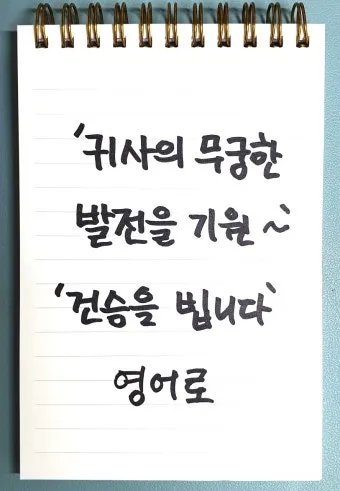 '귀사의 무궁한
발전을 기원~'
'건승을 빕니다'
영어로